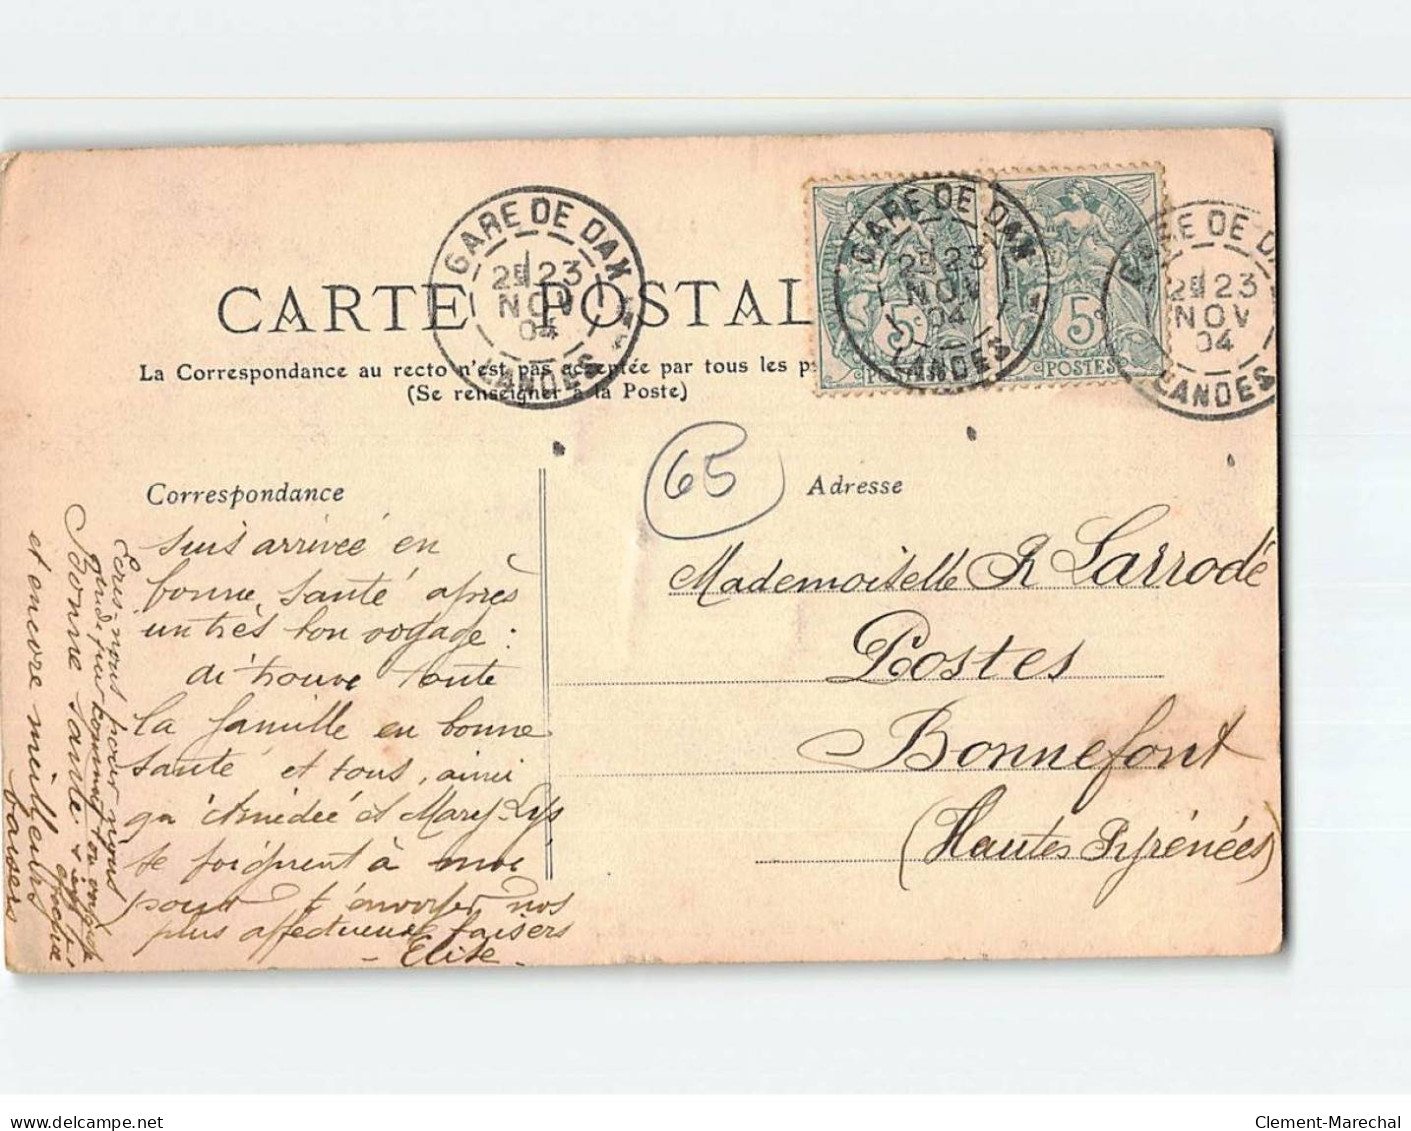 GARE DE DAX
2E 23
NOV
04
LANDES
GARE DE DAX
2E 23
NOV
04
LANDES
GARE DE DAX
2E 23
NOV
04
LANDES
5c
POSTES
5c
POSTES
CARTE POSTAL
La Correspondance au recto n'est pas acceptée par tous les p
(Se renseigner à la Poste)
65
Correspondance
Adresse
suis arrivée en
bonne santé après
un très bon voyage :
ai trouvé toute
la famille en bonne
santé et tous, ainsi
Amédée et Mary-Lys
se joignent à moi
pour t'envoyer nos
plus affectueux baisers
- Elise -
Ecris-nous pour nous
Bonne santé
et encore meilleurs
baisers
Mademoiselle R Larrodé
Postes
Bonnefont
(Hautes Pyrénées)
Clement-Marechal